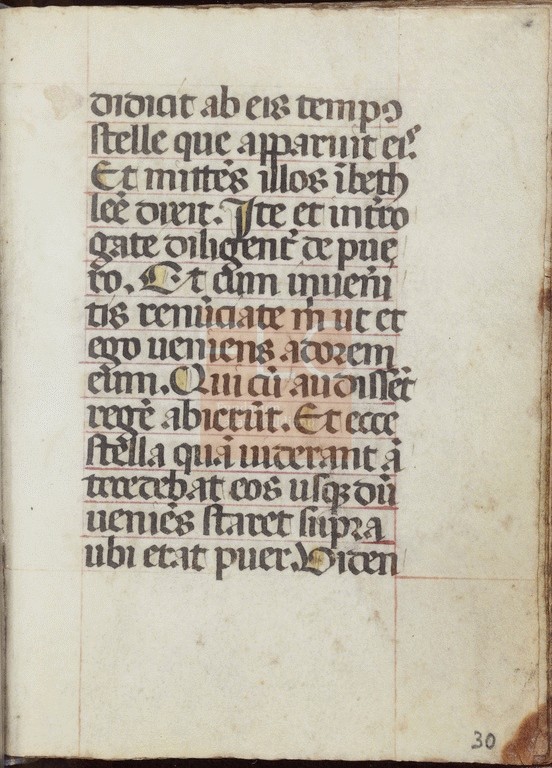 didicit ab eis tempꝰ
stelle que apparuit eis.
Et mittēs illos ībeth
leē dixit. Ite et intro
gate diligent̄ de pue
ro. Et cum inueni
tis renūciate m̄ ut et
ego ueniens adorem
eum. Qui cū audisset̄
regē abierūt. Et ecce
stella quā uiderant ā
tecedebat eos usqꝫ dū
ueniēs staret supra
ubi erat puer. Viden
30